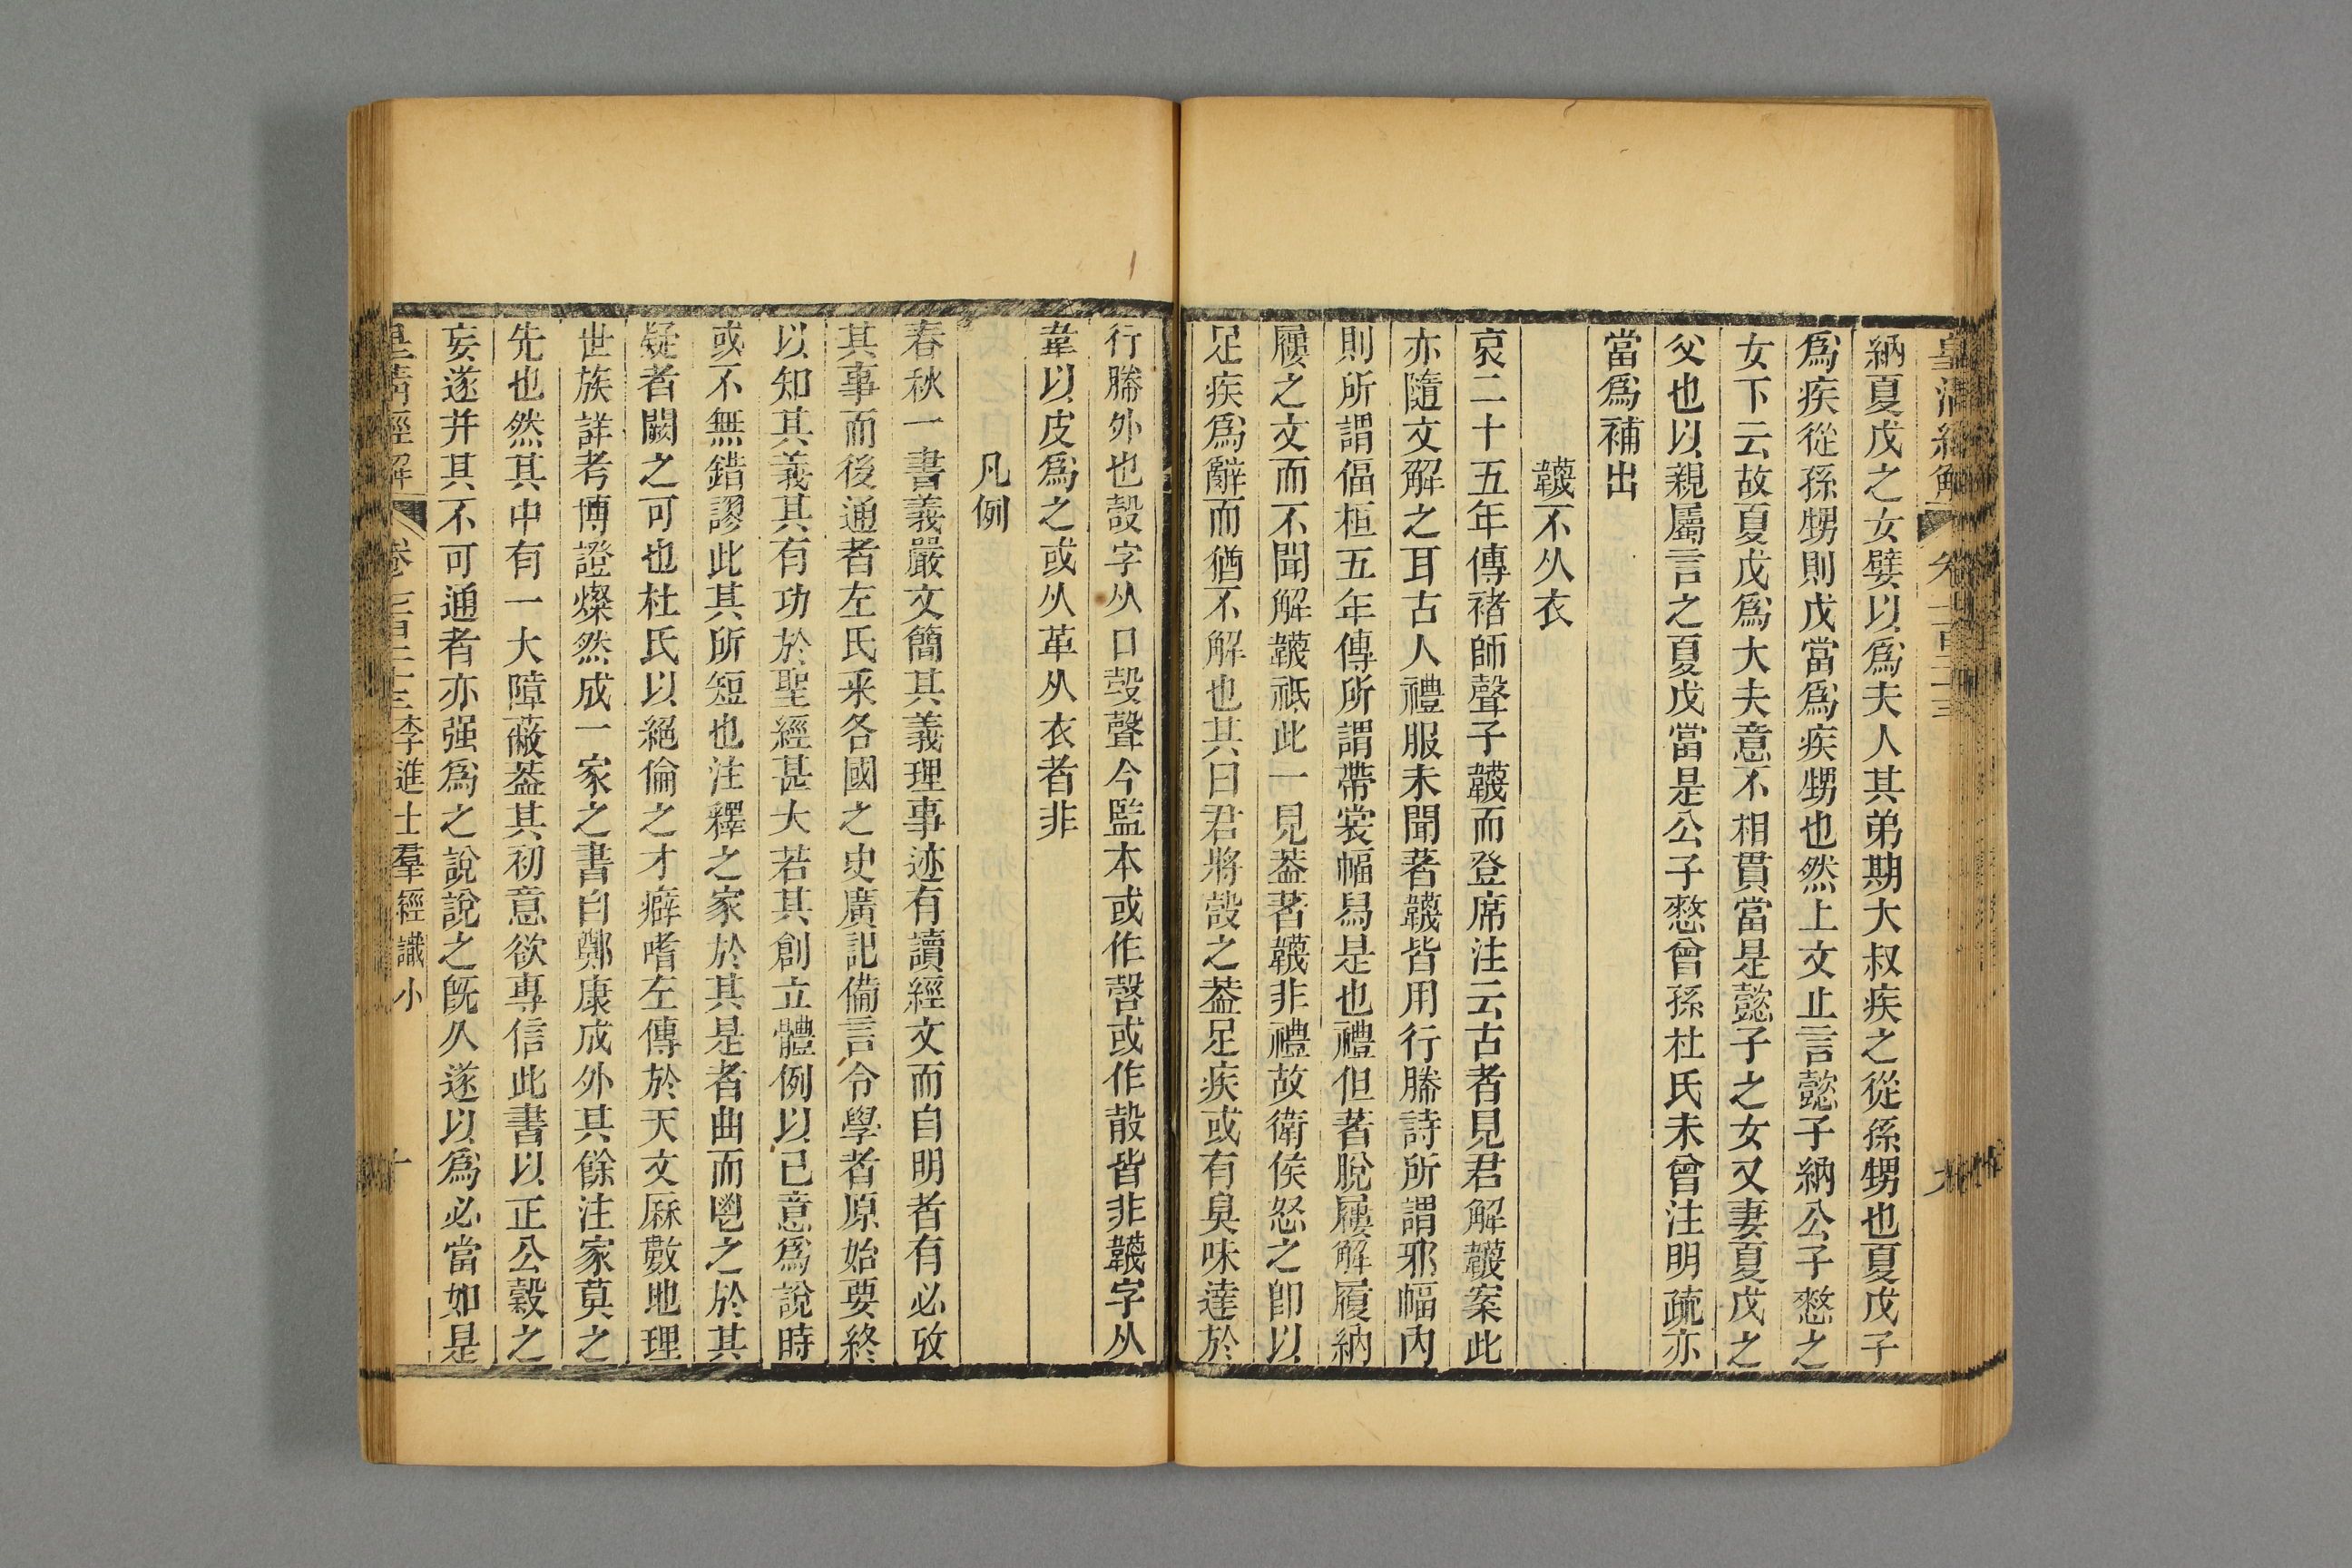 納夏戊之女嬖以爲夫人其弟期大叔疾之從孫甥也夏戊子
爲疾從孫甥則戊當爲疾甥也然上文止言懿子納公子憖之
女下云故夏戊爲大夫意不相貫當是懿子之女又妻夏戊之
父也以親屬言之夏戊當是公子憖曾孫杜氏未曾注明疏亦
當爲補出
韤不从衣
哀二十五年傳褚師聲子韤而登席注云古者見君解韤案此
亦隨文解之耳古人禮服未聞著韤皆用行縢詩所謂邪幅內
則所謂偪桓五年傳所謂帶裳幅舄是也禮但著脫屨解履納
屨之文而不聞解韤祇此一見葢著韤非禮故衛侯怒之卽以
足疾爲辭而猶不解也其曰君將㱿之葢足疾或有臭味達於
行縢外也㱿字从口㱿聲今監本或作謦或作散皆非韤字从
韋以皮爲之或从革从衣者非
凡例
春秋一書義嚴文簡其義理事迹有讀經文而自明者有必攷
其事而後通者左氏采各國之史廣記備言令學者原始要終
以知其義其有功於聖經甚大若其創立體例以已意爲說時
或不無錯謬此其所短也注釋之家於其是者曲而鬯之於其
疑者闕之可也杜氏以絕倫之才癖嗜左傳於天文厤數地理
世族詳考博證燦然成一家之書自鄭康成外其餘注家莫之
先也然其中有一大障蔽葢其初意欲專信此書以正公穀之
妄遂并其不可通者亦强爲之說說之旣久遂以爲必當如是
皇淸經解 卷七百二十三 李進士羣經識小 十